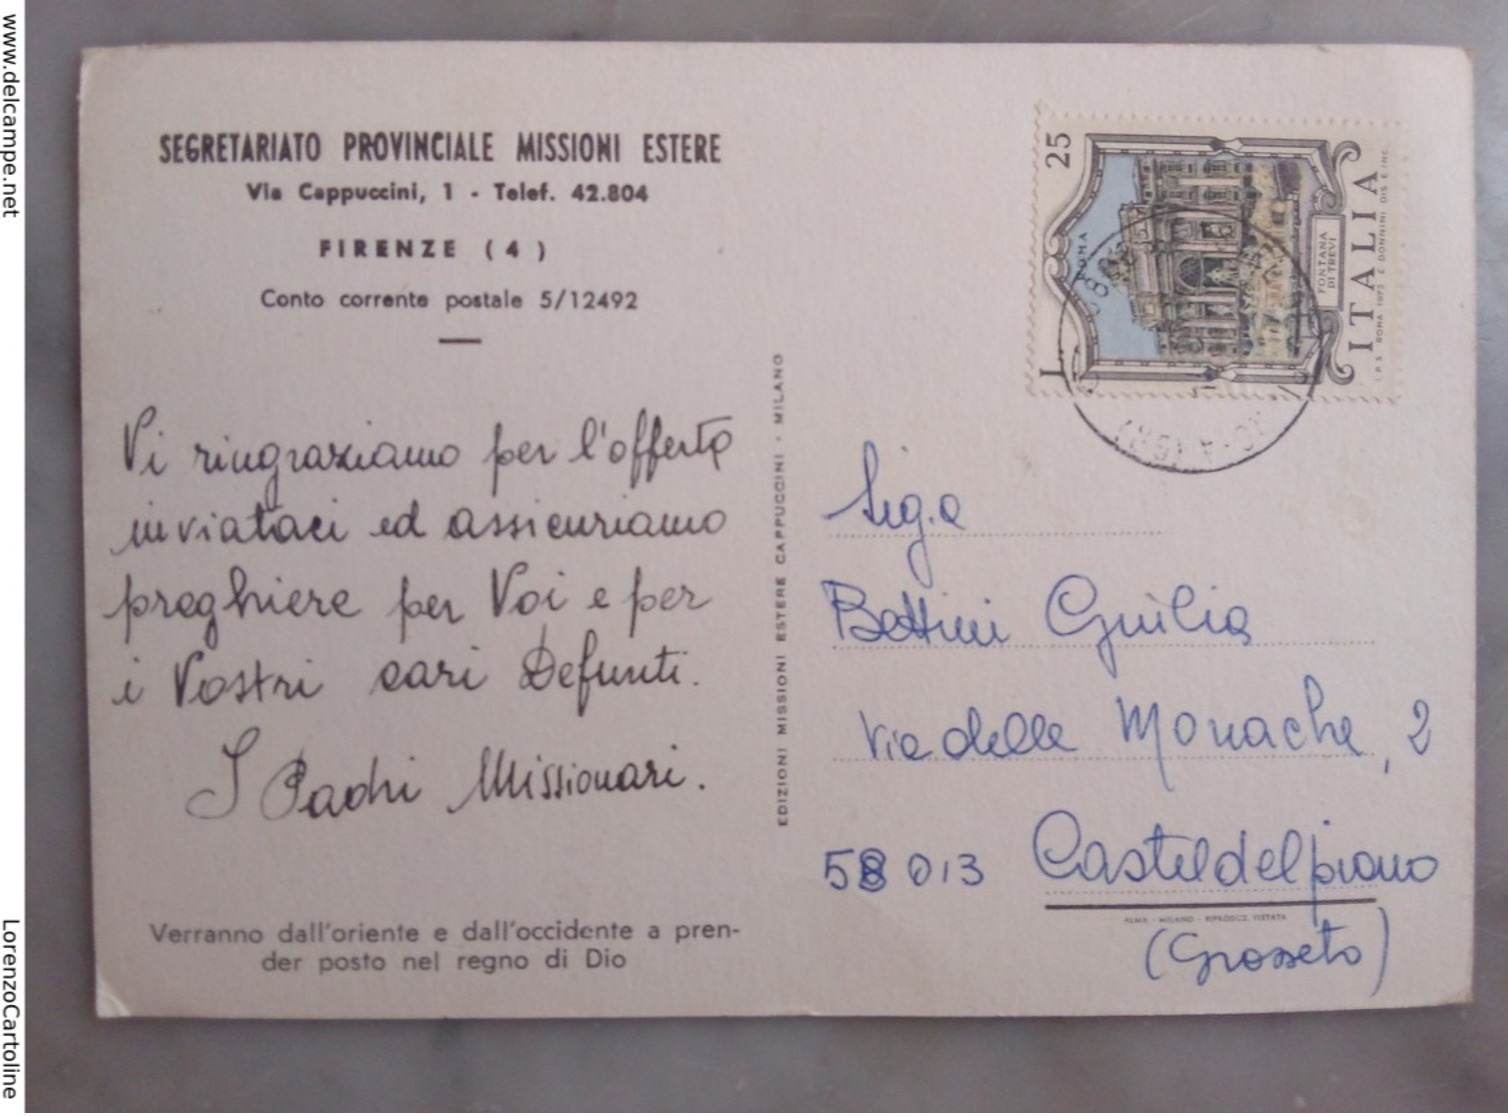 www.delcampe.net
LorenzoCartoline
SEGRETARIATO PROVINCIALE MISSIONI ESTERE
Via Cappuccini, 1 - Telef. 42.804
FIRENZE (4)
Conto corrente postale 5/12492
Vi ringraziamo per l'offerta
inviataci ed assicuriamo
preghiere per Voi e per
i Vostri cari Defunti.
I Padri Missionari.
Verranno dall'oriente e dall'occidente a pren-
der posto nel regno di Dio
EDIZIONI MISSIONI ESTERE CAPPUCCINI - MILANO
L. 25
ROMA
FONTANA
DI TREVI
ITALIA
I.P.S. ROMA 1973 E. DONNINI DIS. E INC.
Sig.a
Bettini Giulia
Via delle Monache, 2
58013 Casteldelpiano
ALMA - MILANO - RIPRODUZ. VIETATA
(Grosseto)